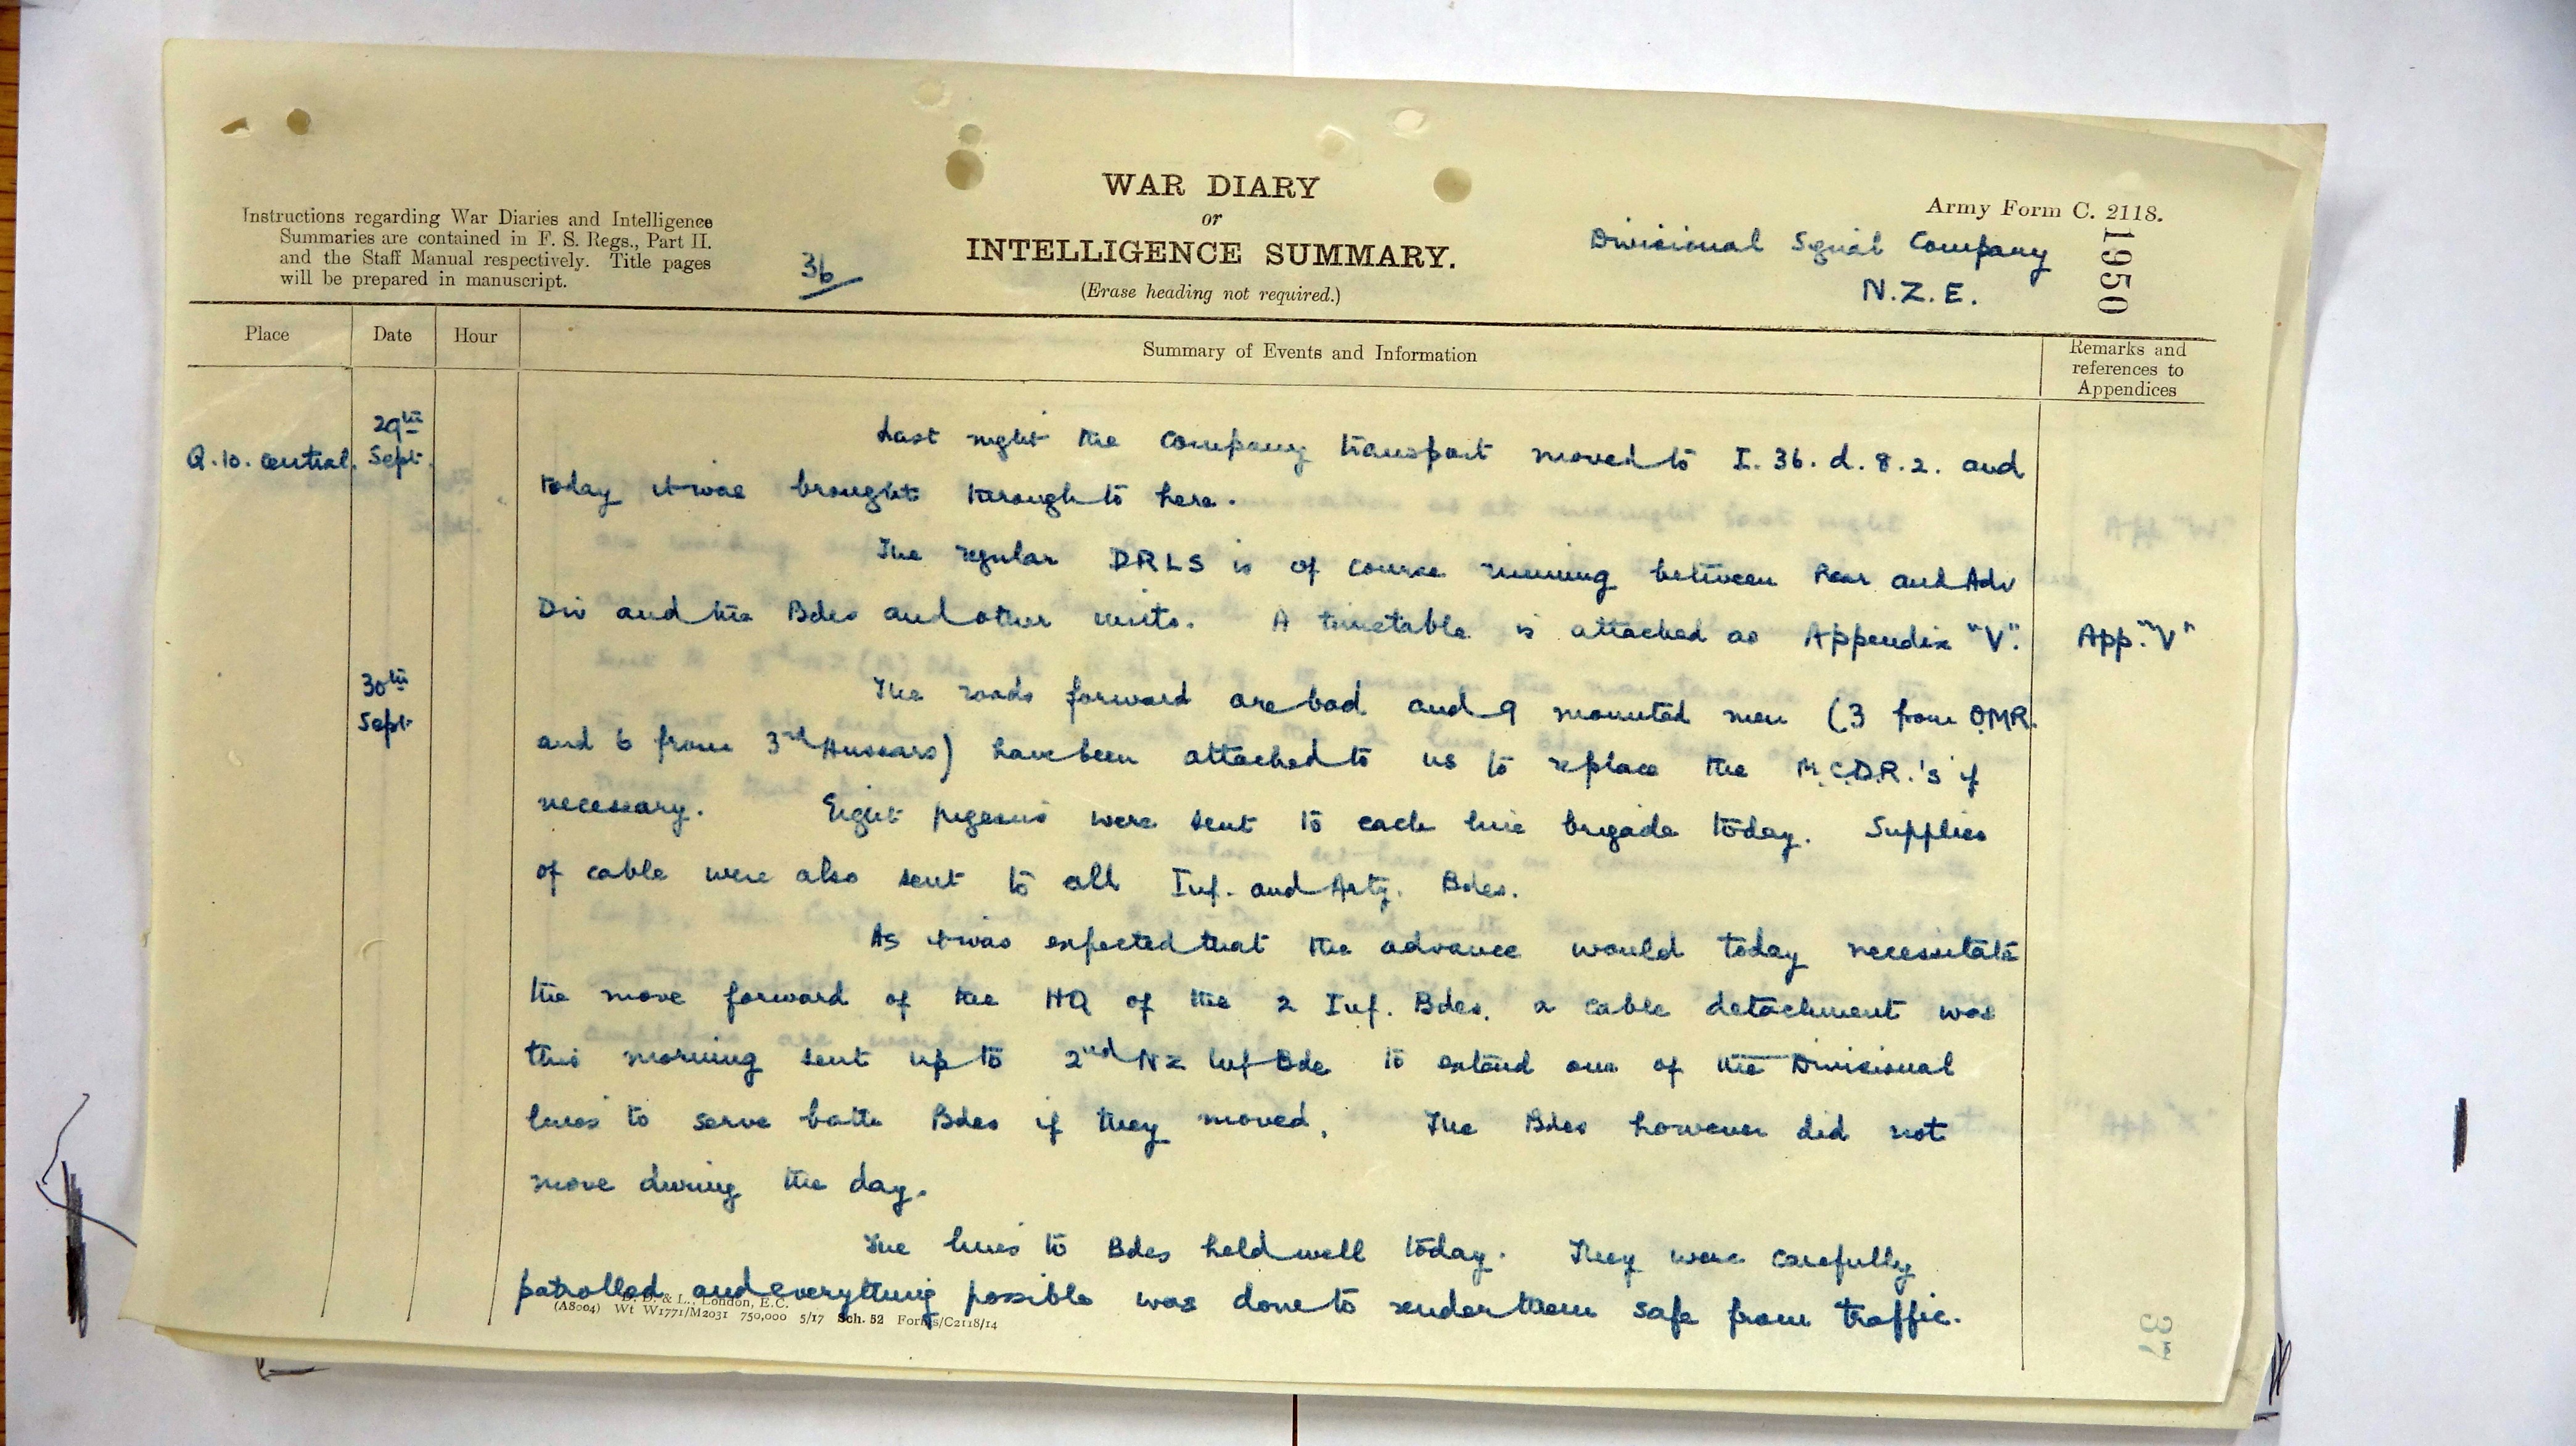 WAR DIARY
or
INTELLIGENCE SUMMARY.
(Erase heading not required.)
Instructions regarding War Diaries and Intelligence
Summaries are contained in F. S. Regs., Part II.
and the Staff Manual respectively. Title pages
will be prepared in manuscript.
36
Army Form C. 2118.
Divisional Signal Company
N.Z.E.
1950
Place Date Hour Summary of Events and Information Remarks and
references to
Appendices
29th
Q.10. central. Sept. Last night the company transport moved to I. 36. d. 8. 2. and
today it was brought through to here.
The regular DRLS is of course running between Rear and Adv
Div and the Bdes and other units. A timetable is attached as Appendix "V". App. "V"
30th
Sept. The roads forward are bad and 9 mounted men (3 from OMR.
and 6 from 3rd Hussars) have been attached to us to replace the M.C.D.R.'s if
necessary. Eight pigeons were sent to each line brigade today. Supplies
of cable were also sent to all Inf. and Arty. Bdes.
As it was expected that the advance would today necessitate
the move forward of the HQ of the 2 Inf. Bdes. a cable detachment was
this morning sent up to 2nd NZ Inf Bde to extend one of the Divisional
lines to serve both Bdes if they moved. The Bdes however did not
move during the day.
The lines to Bdes held well today. They were carefully
patrolled and everything possible was done to render them safe from traffic.
D. D. & L., London, E.C.
(A8004) Wt W1771/M2031 750,000 5/17 Sch. 52 Forms/C2118/14
37